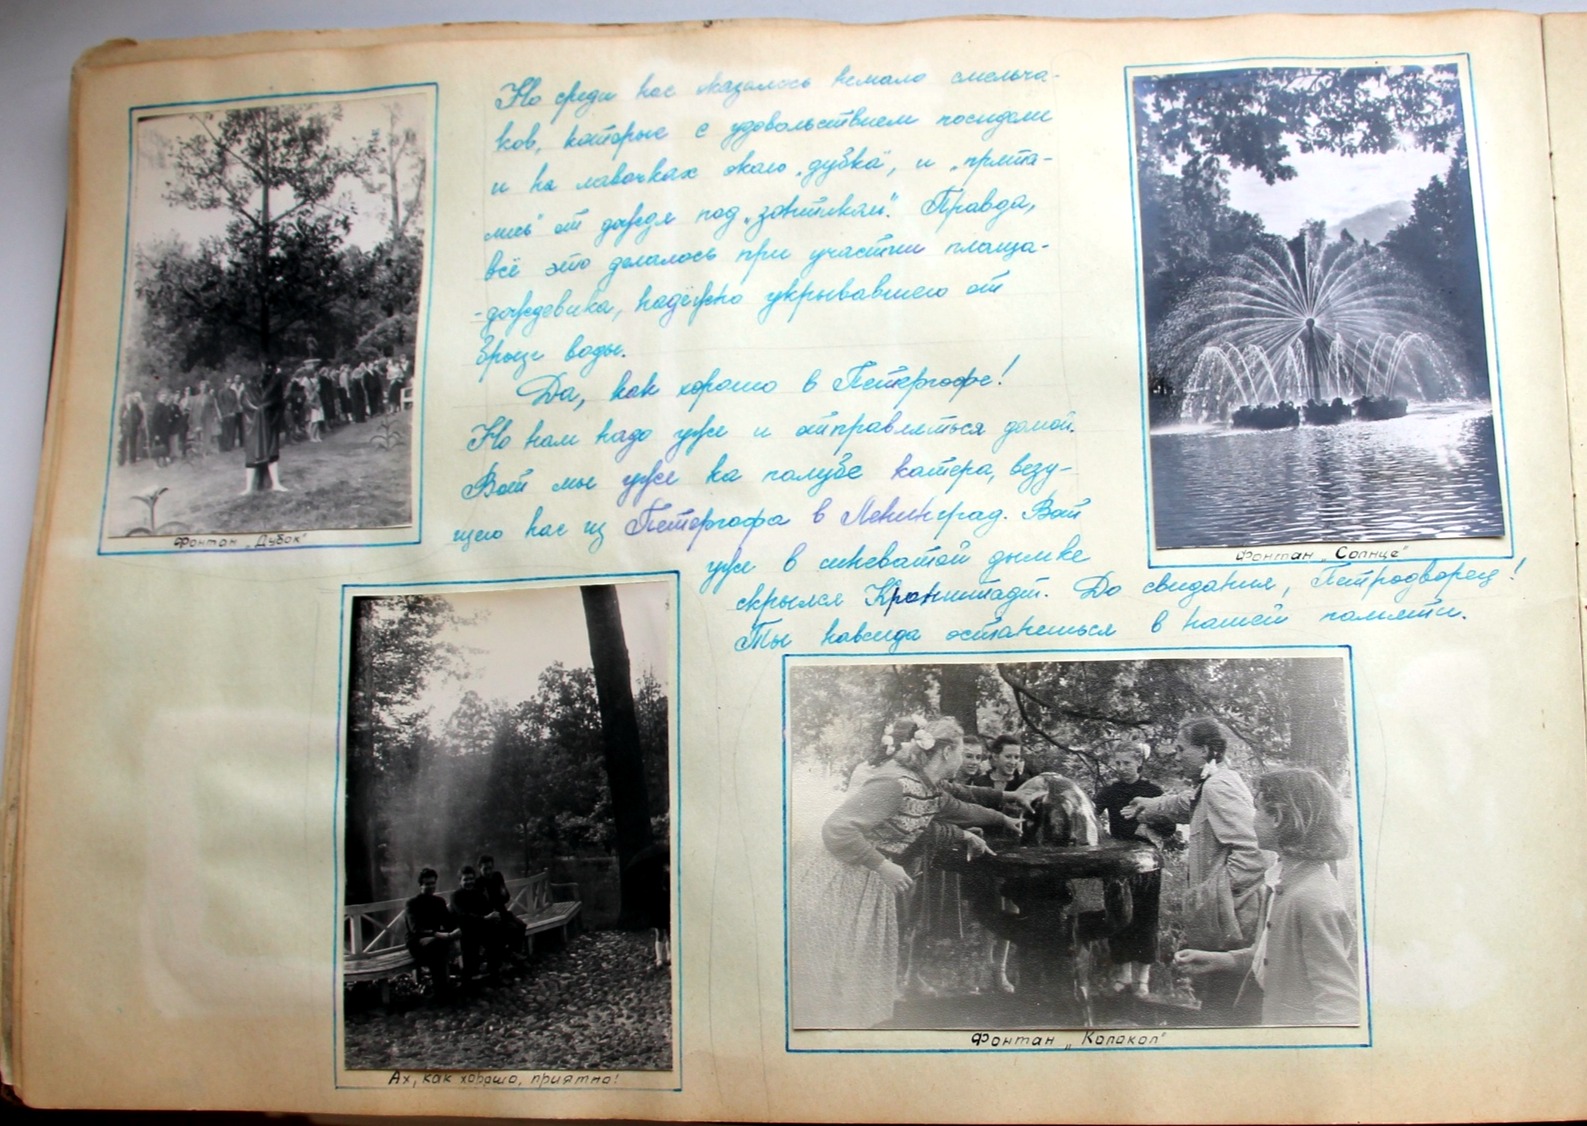 Но среди нас оказалось немало смельча-
ков, которые с удовольствием посидели
и на лавочках около „дубка", и „прята-
лись" от дождя под „зонтиком". Правда,
всё это делалось при участии плаща-
-дождевика, надёжно укрывавшего от
брызг воды.
Да, как хорошо в Петергофе!
Но нам надо уже и отправляться домой.
Вот мы уже на палубе катера, везу-
щего нас из Петергофа в Ленинград. Вот
уже в синеватой дымке
скрылся Кронштадт. До свидания, Петродворец!
Ты навсегда останешься в нашей памяти.
Фонтан „Дубок"
Фонтан „Солнце"
Ах, как хорошо, приятно!
Фонтан „Колокол"